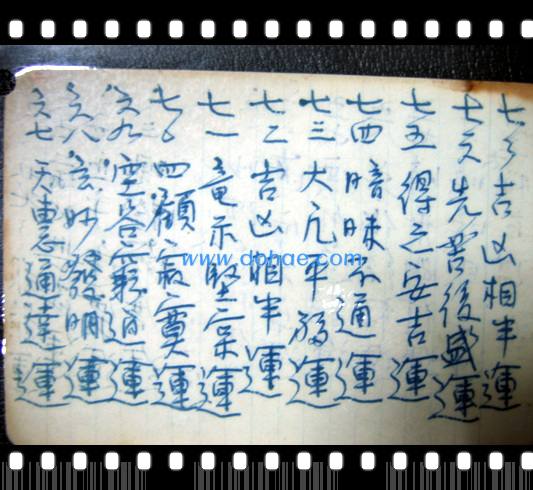 七七吉凶相半運
七六先苦後盛運
七五得之安吉運
七四暗昧不通運
七三大凡平運
七二吉凶相半運
七一堅運
七〇四顧寂寞運
六九空谷窮道運
六八玄妙發明運
六七天惠通達運
www.dohae.com